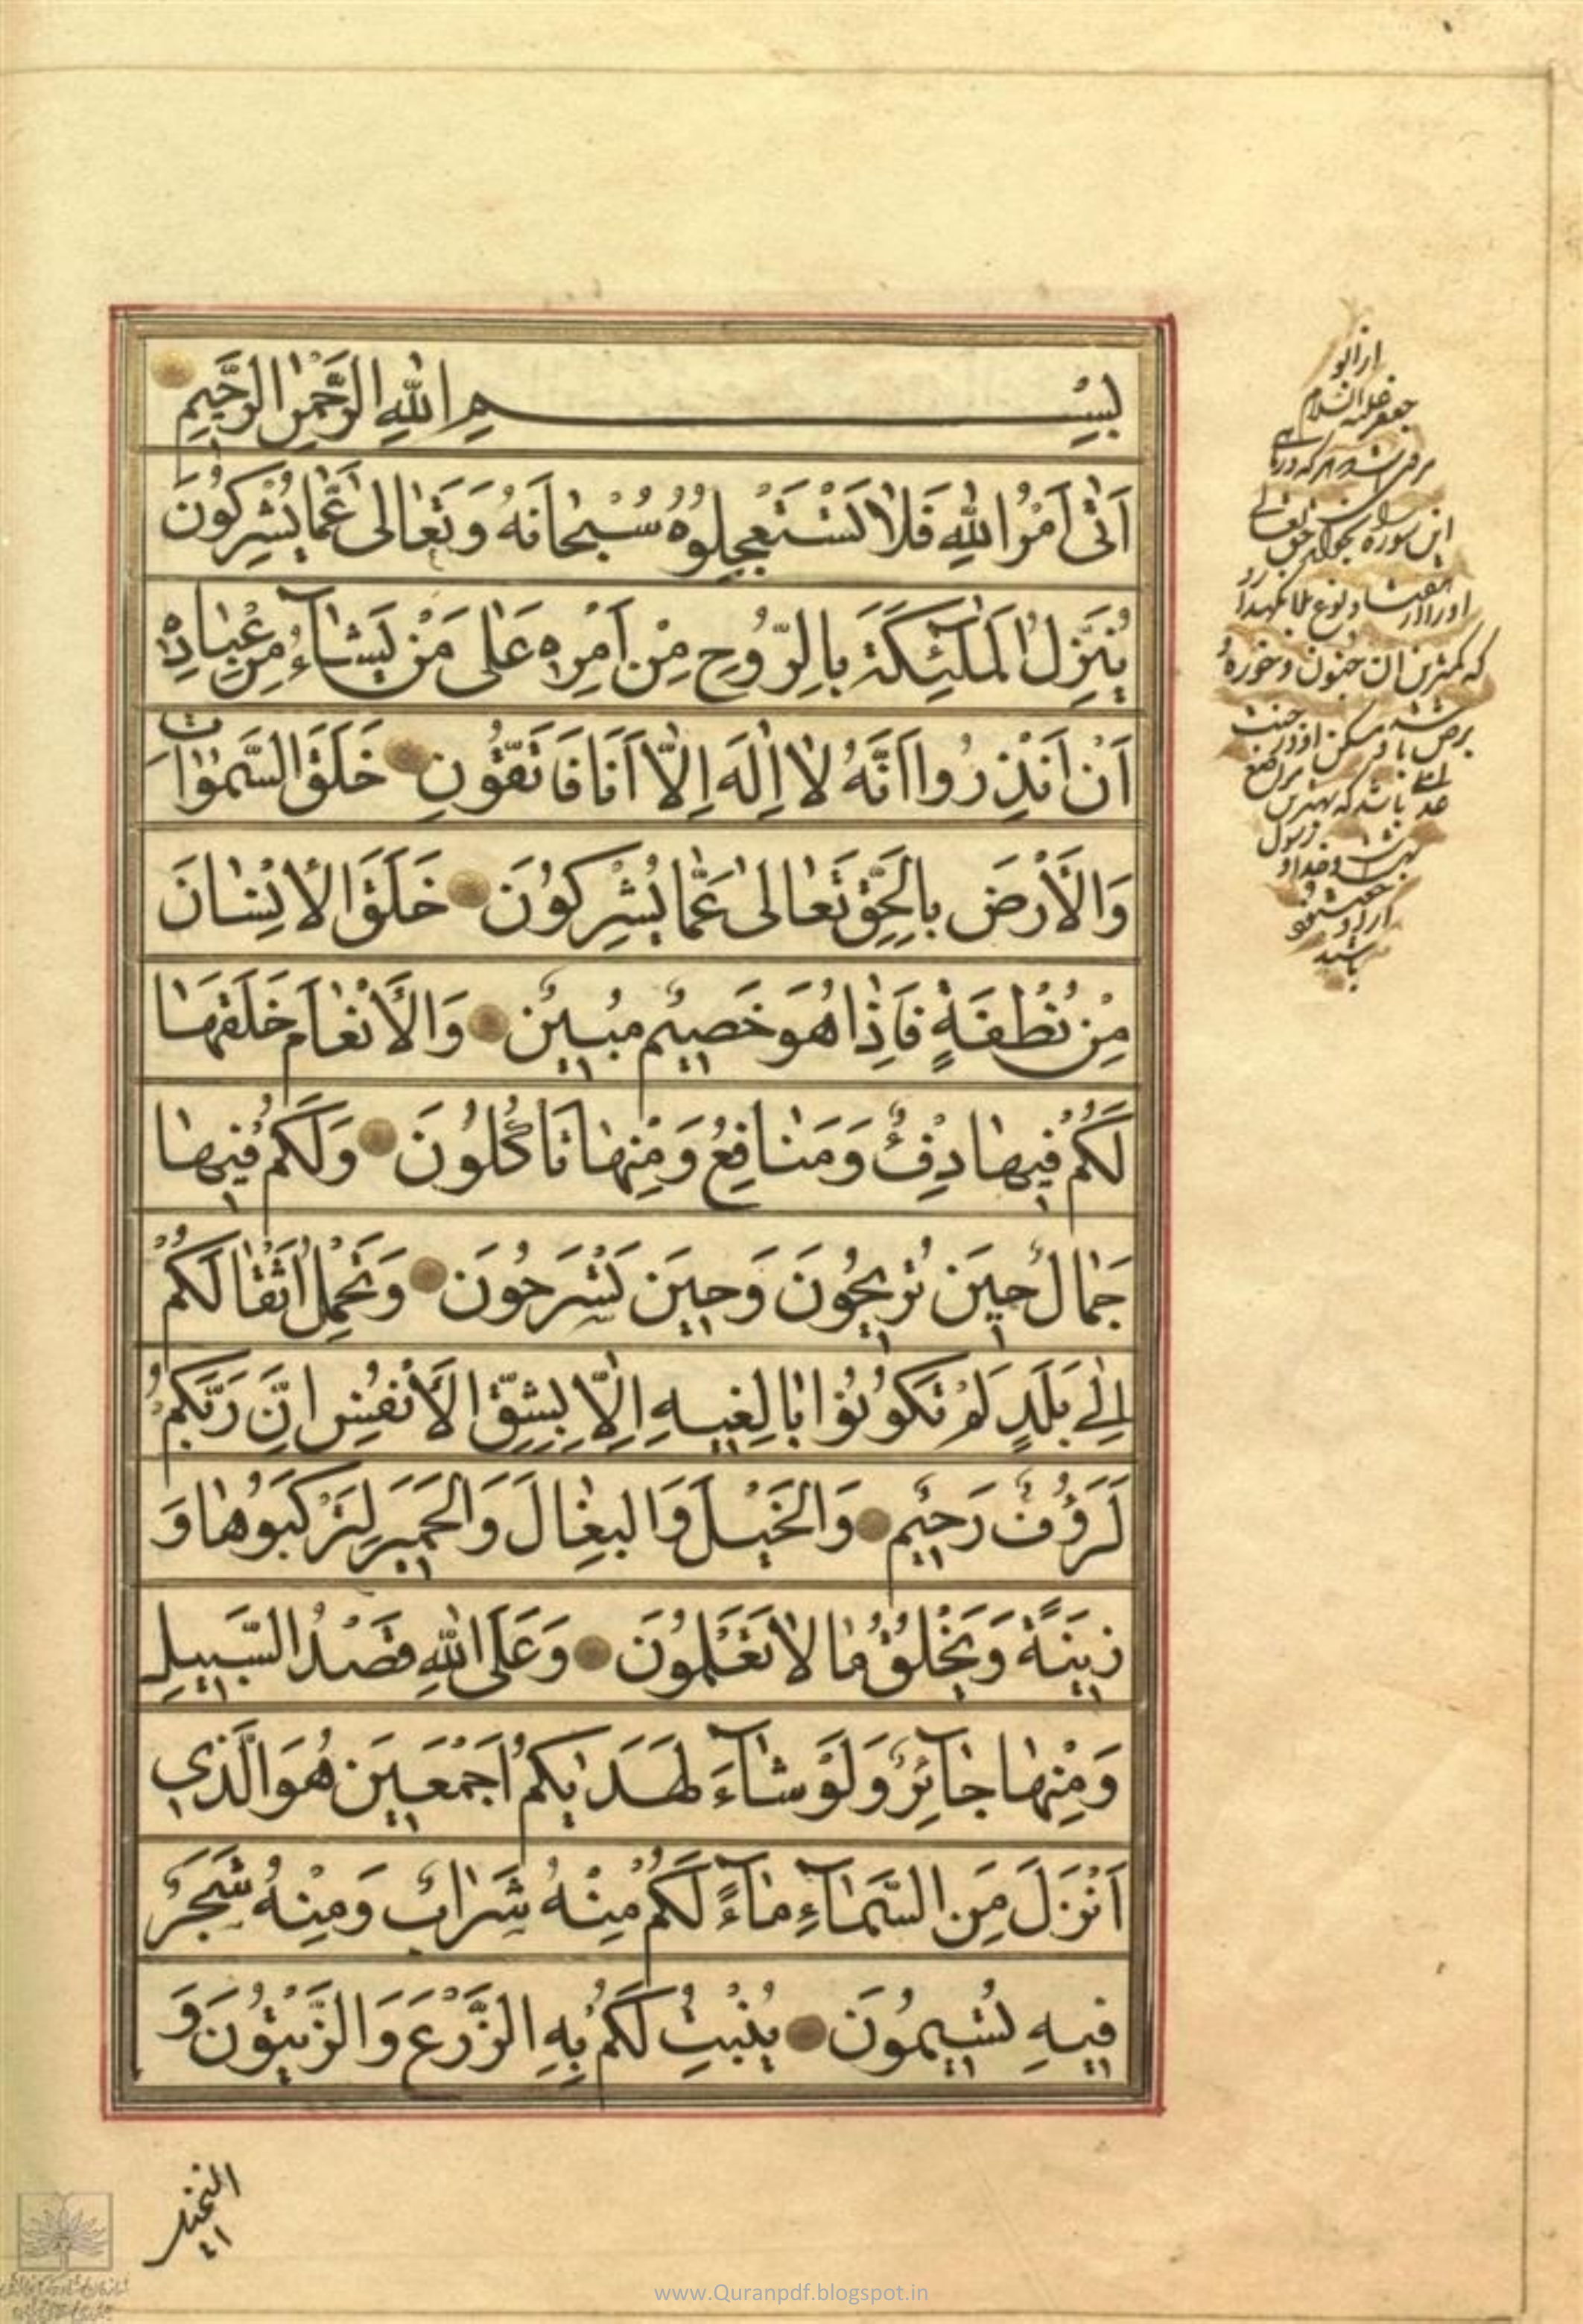 بِسْمِ اللهِ الرَّحْمٰنِ الرَّحِيمِ
اَتٰى اَمْرُ اللهِ فَلَا تَسْتَعْجِلُوهُ سُبْحَانَهُ وَتَعَالٰى عَمَّا يُشْرِكُونَ
يُنَزِّلُ الْمَلٰٓئِكَةَ بِالرُّوحِ مِنْ اَمْرِهِ عَلٰى مَنْ يَشَآءُ مِنْ عِبَادِهِ
اَنْ اَنْذِرُوا اَنَّهُ لَا اِلٰهَ اِلَّا اَنَا فَاتَّقُونِ خَلَقَ السَّمٰوَاتِ
وَالْاَرْضَ بِالْحَقِّ تَعَالٰى عَمَّا يُشْرِكُونَ خَلَقَ الْاِنْسَانَ
مِنْ نُطْفَةٍ فَاِذَا هُوَ خَصِيمٌ مُبِينٌ وَالْاَنْعَامَ خَلَقَهَا
لَكُمْ فِيهَا دِفْءٌ وَمَنَافِعُ وَمِنْهَا تَاْكُلُونَ وَلَكُمْ فِيهَا
جَمَالٌ حِينَ تُرِيحُونَ وَحِينَ تَسْرَحُونَ وَتَحْمِلُ اَثْقَالَكُمْ
اِلٰى بَلَدٍ لَمْ تَكُونُوا بَالِغِيهِ اِلَّا بِشِقِّ الْاَنْفُسِ اِنَّ رَبَّكُمْ
لَرَؤُفٌ رَحِيمٌ وَالْخَيْلَ وَالْبِغَالَ وَالْحَمِيرَ لِتَرْكَبُوهَا وَ
زِينَةً وَيَخْلُقُ مَا لَا تَعْلَمُونَ وَعَلَى اللهِ قَصْدُ السَّبِيلِ
وَمِنْهَا جَآئِرٌ وَلَوْ شَآءَ لَهَدٰيكُمْ اَجْمَعِينَ هُوَ الَّذِي
اَنْزَلَ مِنَ السَّمَآءِ مَآءً لَكُمْ مِنْهُ شَرَابٌ وَمِنْهُ شَجَرٌ
فِيهِ تُسِيمُونَ يُنْبِتُ لَكُمْ بِهِ الزَّرْعَ وَالزَّيْتُونَ وَ
النخيل
جعفر عليه السلام
این سوره
که کمترین ان جنون و خوره
باشد که بهترین
باشد
www.Quranpdf.blogspot.in